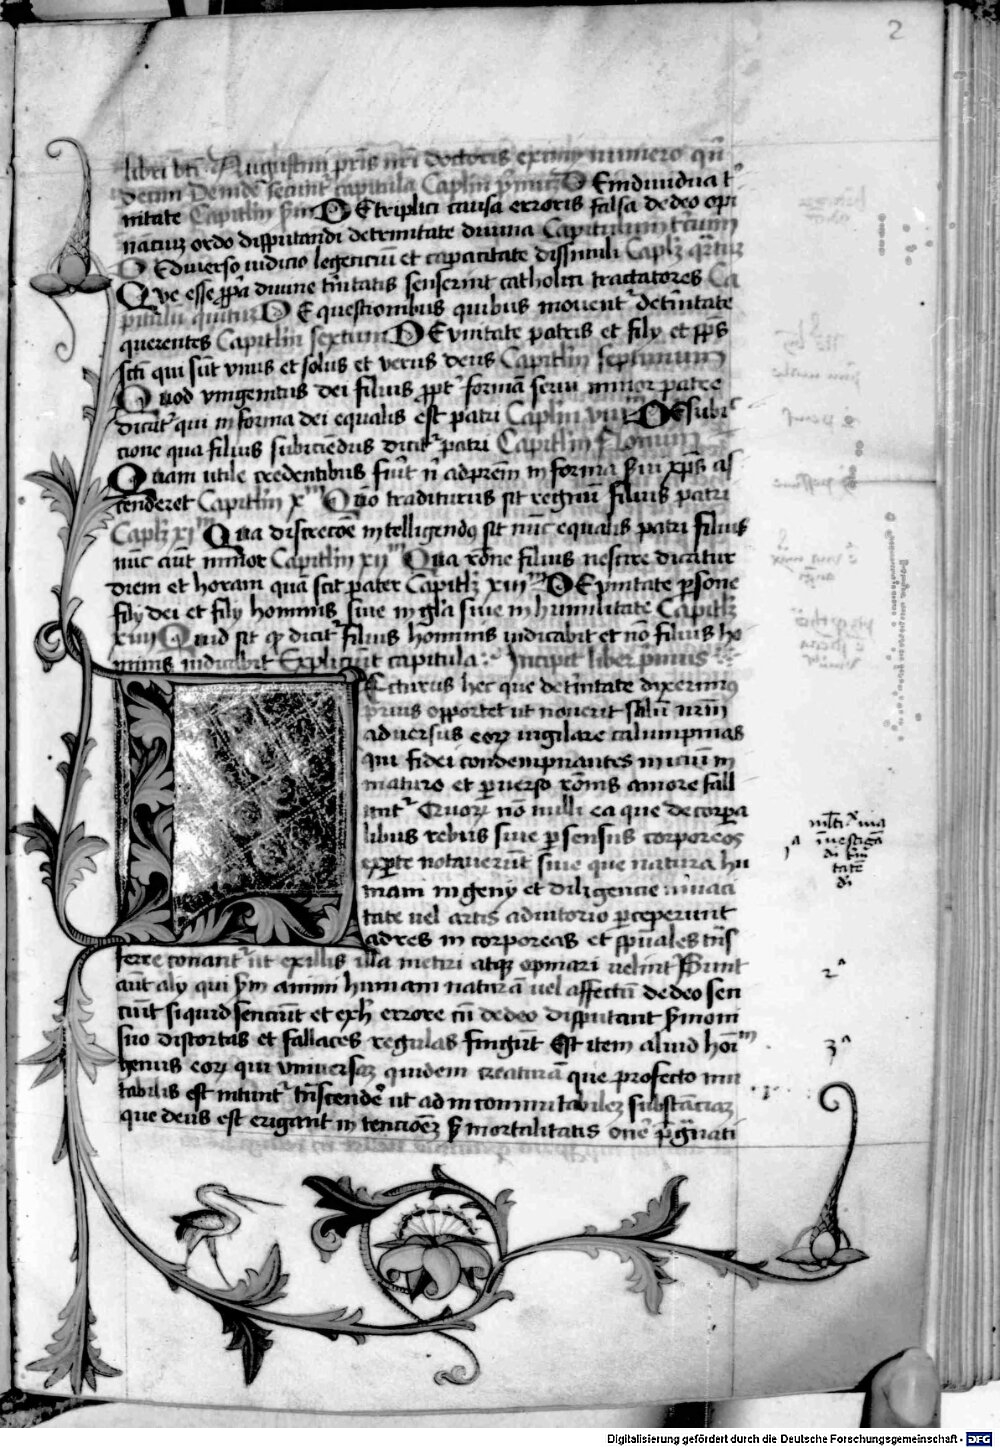 2
libri bti Augustini pris nri doctoris eximij numero qn
decim Deinde secunt capitula Caplm pmuz DE indiuidua t
nitate Capitlm scdm DE triplici causa erroris falsa de deo opi
nanciuz ordo disputandi de trinitate diuina Capitulum tercium
DE diuerso iudicio legenciu et capacitate dissimili Caplz qrtuz
Que esse ppa diuine tnitatis senserint catholici tractatores Ca
pitulu quintuz DE questionibus quibus mouent de tinitate
querentes Capitlm sextum DE vnitate patris et filij et sps
scti qui sut vnus et solus et verus deus Capitlm septimum
Quod vnigenitus dei filius ppt forma serui minor patre
dicit qui in forma dei equalis est patri Caplm viii DE subi
cione qua filius subiciendus dicit patri Capitlm Nonum
Quam utile credentibus fuit n ad prem in forma sui xps as
cenderet Capitlm x Quo traditurus sit regnu filius patri
Caplz xi Qua discrecoe intelligendus sit nuc equalis patri filius
nuc aut minor Capitlm xii Qua rone filius nescire dicatur
diem et horam qua scit pater Capitlz xiii DE vnitate psone
filij dei et filij hominis siue in gla siue in humilitate Capitlz
xiiii Quid sit qd dicit filius hominis iudicabit et no filius ho
minis iudicabit Expliciut capitula Incipit liber pmus
Lecturus hec que de tinitate dixerimus
prius opportet ut nouerit stilu nrm
aduersus eorz uigilare calumpnias
qui fidei condempnantes iniciu in
mature et puerso ronis amore fall
unt Quorz no nulli ea que de corpa
libus rebus siue p sensus corporeos
expte notauerut siue que natura hu
mani ingenij et diligencie uiuaci
tate uel artis adiutorio pceperunt
ad res in corporeas et spuales tns
ferre conant ut ex illis illa metiri atqz opinari uelint Sunt
aut alij qui sm animi humani natura uel affectu de deo sen
ciut siquid senciut et ex h errore cu de deo disputant smoni
suo distortas et fallaces regulas fingut Est item aliud hoim
genus eorz qui vniuersaz quidem creatura que profecto mu
tabilis est nitunt tnscende ut ad in commutabilez substaciaz
que deus est erigant in tencioez s mortalitatis one pgrauati
2a
3a
Digitalisierung gefördert durch die Deutsche Forschungsgemeinschaft - DFG